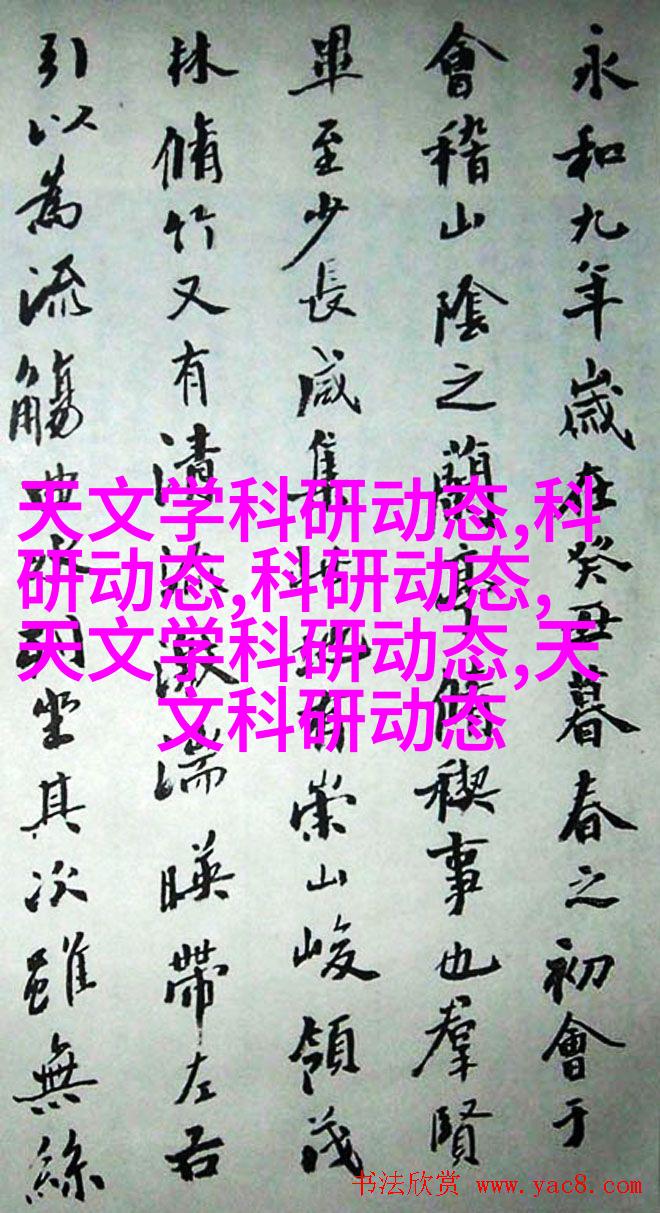 永和九年歲在癸丑暮春之初會于
會稽山陰之蘭亭脩禊事也羣賢
畢至少長咸集此地有崇山峻領茂
林脩竹又有清流激湍暎帶左右
引以為流觴曲水列坐其次雖無絲
天文学科研动态,科
研动态,科研动态,
天文学科研动态,天
文科研动态
书法欣赏 www.yac8.com